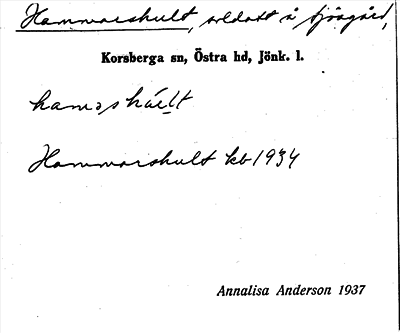 Hammarshult, soldatt å sjögård,
Korsberga sn, Östra hd, Jönk. l.
hamǝshúeḷt
Hammarshult kb 1934
Annalisa Anderson 1937